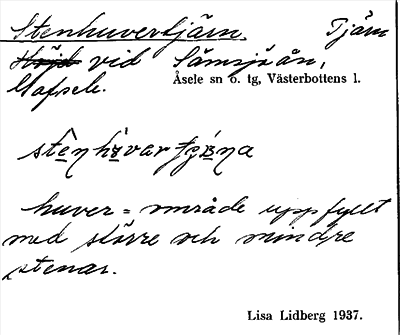 Stenhuvertjärn. Tjärn
Höjd vid Sämsjöån,
Åsele sn o. tg, Västerbottens l.
Gafsele.
huver = område uppfyllt
med större och mindre
stenar.
Lisa Lidberg 1937.